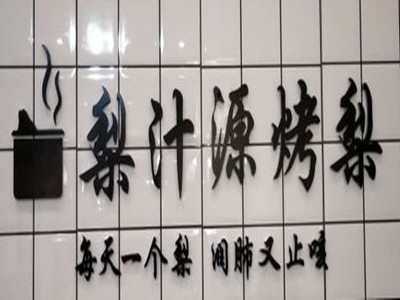 梨汁源烤梨
每天一个梨 润肺又止咳